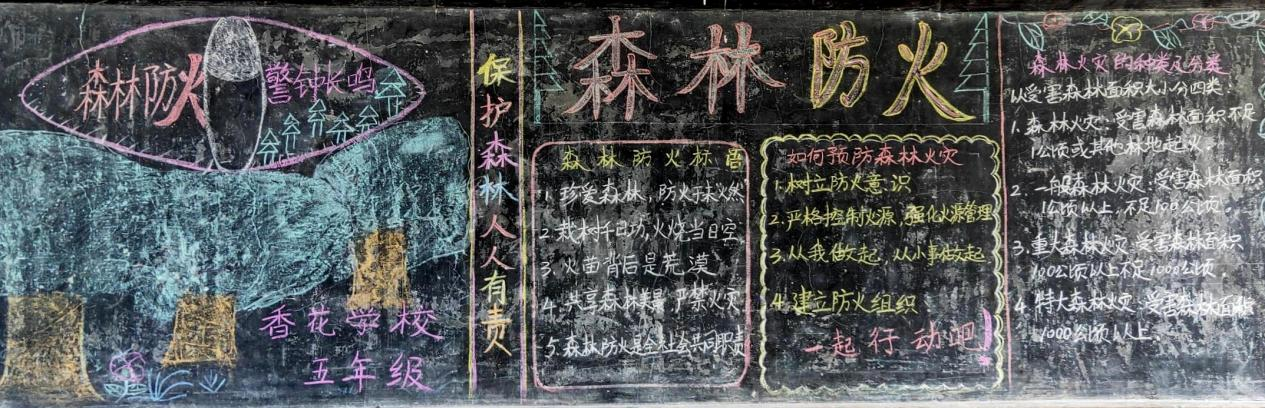 森林防火
警钟长鸣
香花学校
五年级
保护森林人人有责
森林防火
森林防火标语
1. 珍爱森林，防火于未然
2. 栽树千日功，火烧当日空
3. 火苗背后是荒漠
4. 共享森林美景 严禁火灾
5. 森林防火是全社会共同职责
如何预防森林火灾
1. 树立防火意识
2. 严格控制火源，强化火源管理
3. 从我做起，从小事做起
4. 建立防火组织
一起行动吧！
森林火灾的种类及分类
以受害森林面积大小分四类：
1. 森林火灾：受害森林面积不足
1公顷或其他林地起火。
2. 一般森林火灾：受害森林面积
1公顷以上，不足100公顷。
3. 重大森林火灾：受害森林面积
100公顷以上不足1000公顷。
4. 特大森林火灾：受害森林面积
1000公顷以上。